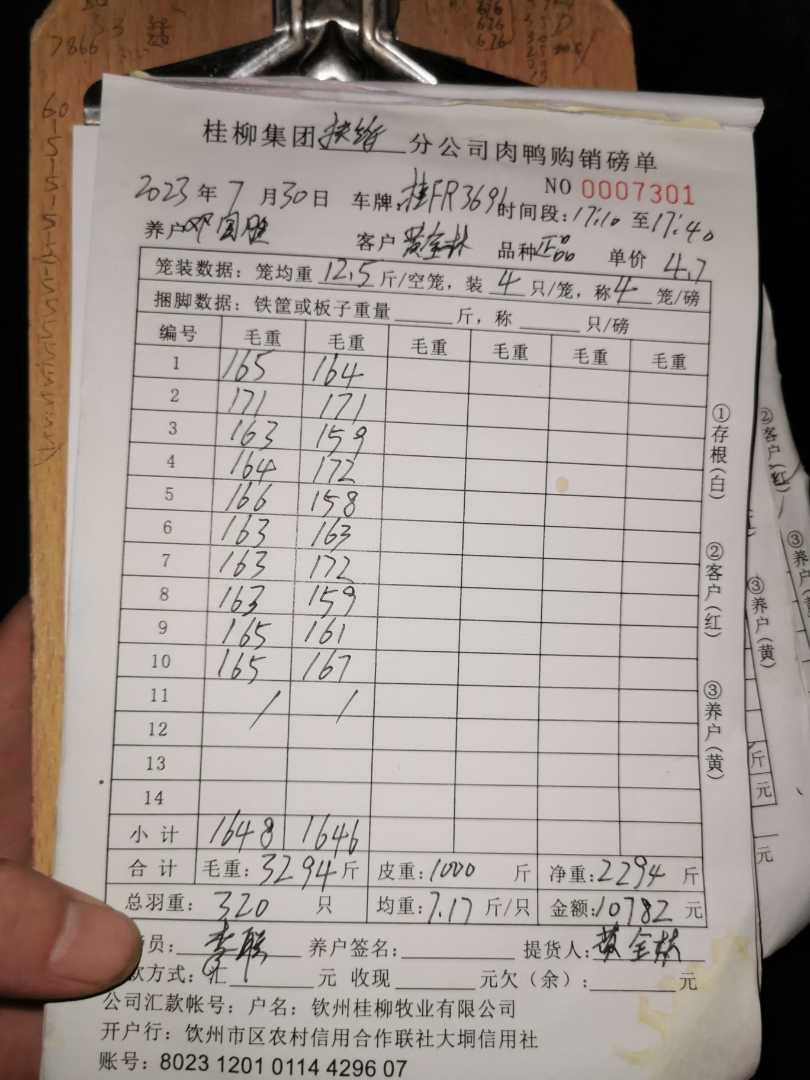 7866
60
桂柳集团扶绥分公司肉鸭购销磅单
NO 0007301
2023年7月30日 车牌:桂FR3696 时间段:17:10至17:40
养户 邓国胜 客户 黄金林 品种 正品 单价 4.7
笼装数据:笼均重 12.5 斤/空笼,装 4 只/笼,称 4 笼/磅
捆脚数据:铁筐或板子重量______斤,称______只/磅
编号 毛重 毛重 毛重 毛重 毛重 毛重
1 165 164
2 171 171
3 163 159
4 164 172
5 166 158
6 163 163
7 163 172
8 163 159
9 165 161
10 165 167
11 / /
12
13
14
小计 1648 1646
合计 毛重:3294斤 皮重:1000斤 净重:2294斤
总羽重:320只 均重:7.17斤/只 金额:10782元
员: 李联 养户签名: 提货人:黄金林
款方式:汇______元 收现______元欠(余):______元
公司汇款帐号:户名:钦州桂柳牧业有限公司
开户行:钦州市区农村信用合作联社大垌信用社
账号:8023 1201 0114 4296 07
①存根(白)
②客户(红)
③养户(黄)
②客户(红)
③养户(黄)
③养户
斤
元
元